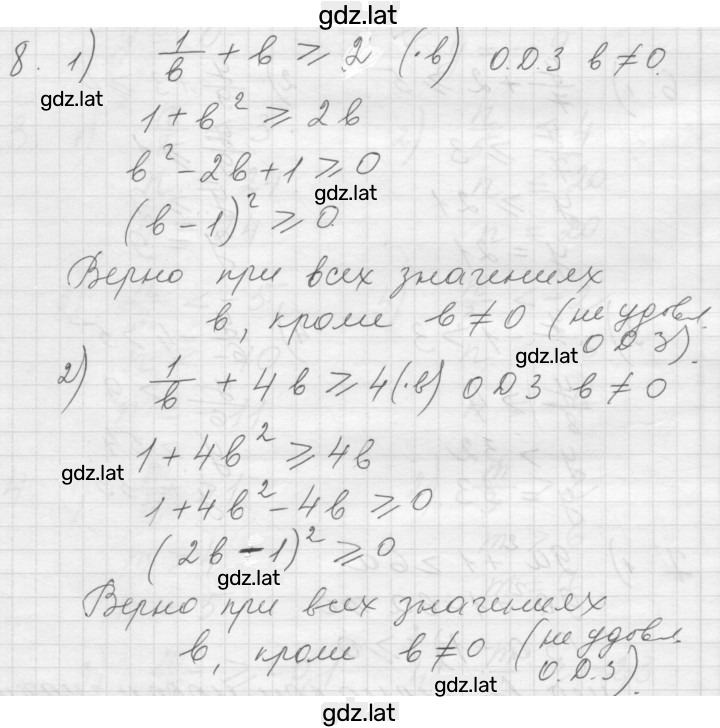 gdz.lat
8. 1) 1/в + в ⩾ 2 (·в) О.Д.З в ≠ 0.
gdz.lat
1 + в² ⩾ 2в
в² - 2в + 1 ⩾ 0
gdz.lat
(в - 1)² ⩾ 0.
Верно при всех значениях
в, кроме в ≠ 0 (не удовл.
gdz.lat О.Д.З).
2) 1/в + 4в ⩾ 4 (·в) О.Д.З в ≠ 0
1 + 4в² ⩾ 4в
gdz.lat
1 + 4в² - 4в ⩾ 0
(2в - 1)² ⩾ 0
gdz.lat
Верно при всех значениях
в, кроме в ≠ 0 (не удовл.
О.Д.З).
gdz.lat
gdz.lat